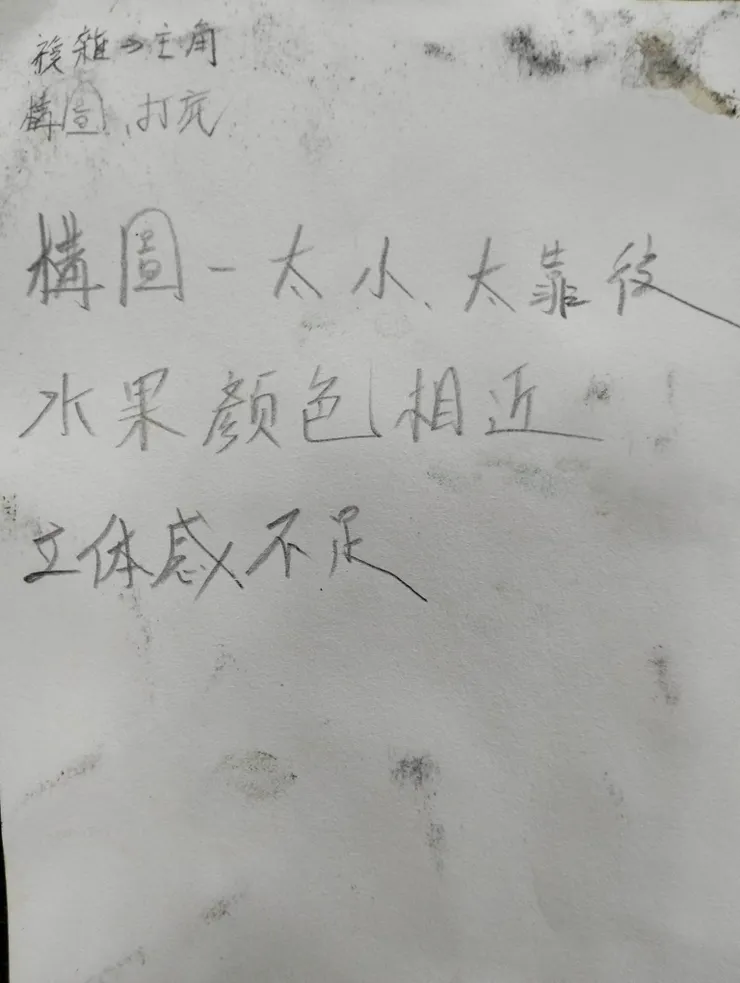 複雜→主角
構圖、打底
構圖-太小、太靠後
水果顏色相近
立体感不足